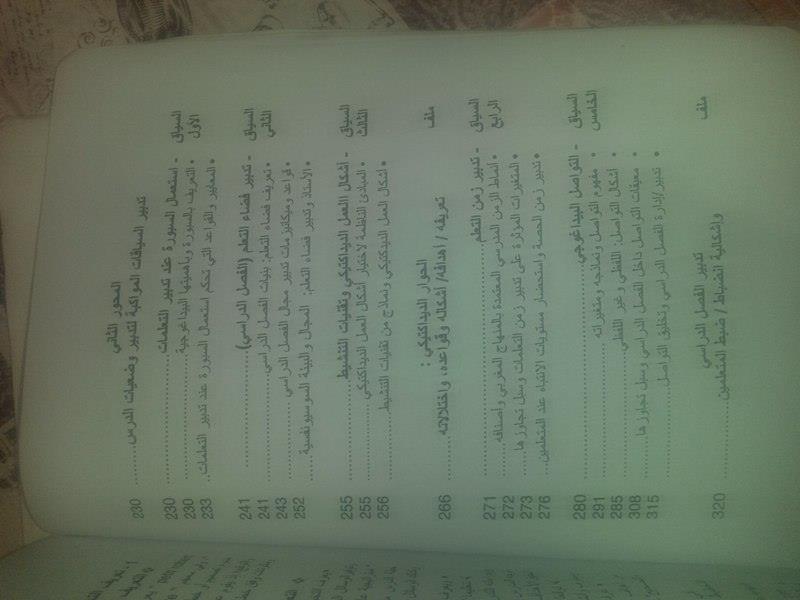 المحور الثاني
تدبير السياقات المواكبة لتدبير وضعيات الدرس ........ 230
السياق الأول - استعمال السبورة عند تدبير التعلمات ........ 230
• التعريف بالسبورة وبأهميتها البيداغوجية ........ 230
• المعايير والقواعد التي تحكم استعمال السبورة عند تدبير التعلمات. 233
السياق الثاني - تدبير فضاء التعلم (الفصل الدراسي) ........ 241
• تعريف فضاء التعلم: بنيات الفصل الدراسي ........ 241
• قواعد وميكانيزمات تدبير مجال الفصل الدراسي ........ 243
• الأستاذ وتدبير فضاء التعلم: المجال والبيئة السوسيونفسية ........ 252
السياق الثالث - أشكال العمل الديداكتيكي وتقنيات التنشيط ........ 255
• المبادئ الناظمة لاختيار أشكال العمل الديداكتيكي ........ 255
• أشكال العمل الديداكتيكي ونماذج من تقنيات التنشيط ........ 256
ملف الحوار الديداكتيكي :
تعريفه / أهدافه/ أشكاله وقواعده، واختلالاته ........ 266
السياق الرابع - تدبير زمن التعلم ........ 271
• أنماط الزمن المدرسي المعتمدة بالمنهاج المغربي وأصنافه ........ 272
• المتغيرات المؤثرة على تدبير زمن التعلمات وسبل تجاوزها ........ 273
• تدبير زمن الحصة واستحضار مستويات الانتباه عند المتعلمين. 276
السياق الخامس - التواصل البيداغوجي ........ 280
• مفهوم التواصل ونماذجه ومتغيراته ........ 291
• أشكال التواصل: اللفظي وغير اللفظي ........ 285
• معيقات التواصل داخل الفصل الدراسي وسبل تجاوزها ........ 308
• تدبير/إدارة الفصل الدراسي وتخليق التواصل ........ 315
ملف تدبير الفصل الدراسي
وإشكالية انضباط / ضبط المتعلمين ........ 320